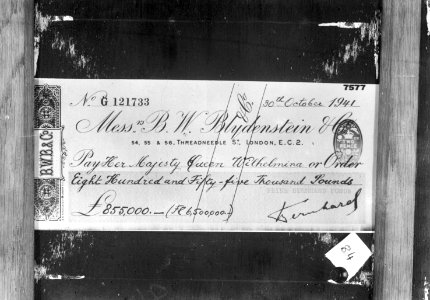 7577
No. G 121733
30th October 1941
Messrs B. W. Blydenstein & Co.
54, 55 & 56, THREADNEEDLE ST. LONDON, E.C.2.
Pay Her Majesty Queen Wilhelmina or Order
Eight Hundred and Fifty-five Thousand Pounds
£855,000.— (Fl 6,500,000.)
Bernhard
B.W.B & Co
& Co
24